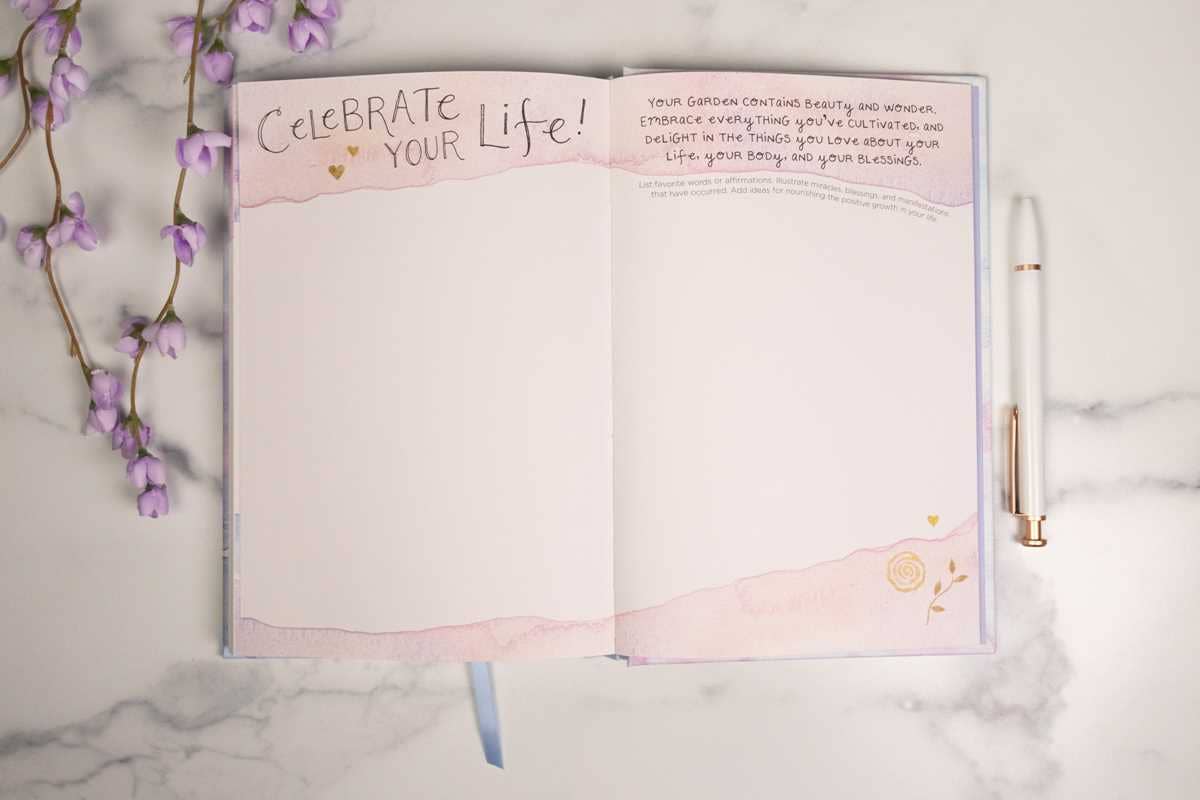 CeLeBRATe
YOUR Life!
YOUR GARDEN CONTAINS BEAUTY AND WONDER.
EMBRACE EVERYTHING YOU'VE CULTIVATED, AND
DELIGHT IN THE THINGS YOU LOVE ABOUT YOUR
LIFE, YOUR BODY, AND YOUR BLESSINGS.
List favorite words or affirmations. Illustrate miracles, blessings, and manifestations
that have occurred. Add ideas for nourishing the positive growth in your life.